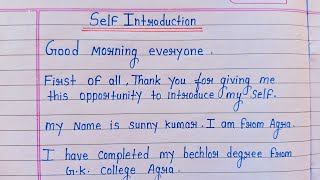 Self Introduction
Good Morning everyone.
First of all, Thank you for giving me
this opportunity to introduce my self.
my Name is sunny kumar. I am from Agra.
I have completed my bechlor degree from
G.K. college Agra.